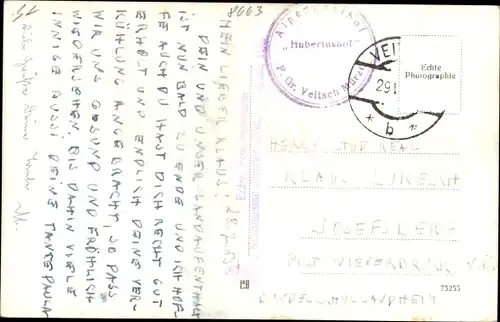 8663
MEIN LIEBER KLAUS!
DEIN UND UNSER LANDAUFENTHALT
IST NUN BALD ZU ENDE UND ICH HOF-
FE AUCH DU HAST DICH RECHT GUT
ERHOLT UND ENDLICH DEINE VER-
KÜHLUNG ANGEBRACHT, SO DASS
WIR UNS GESUND UND FRÖHLICH
WIEDERSEHEN. BIS DAHIN VIELE
INNIGE BUSSI DEINE TANTE PAULA
Alpengasthof
"Hubertushof"
P. Gr. Veitsch Mürzt
VEIT
29
* b *
Echte
Photographie
HERRN STUD REAL
KLAUS
JOSEFSBERG
POST WIENERBRUCK
75255